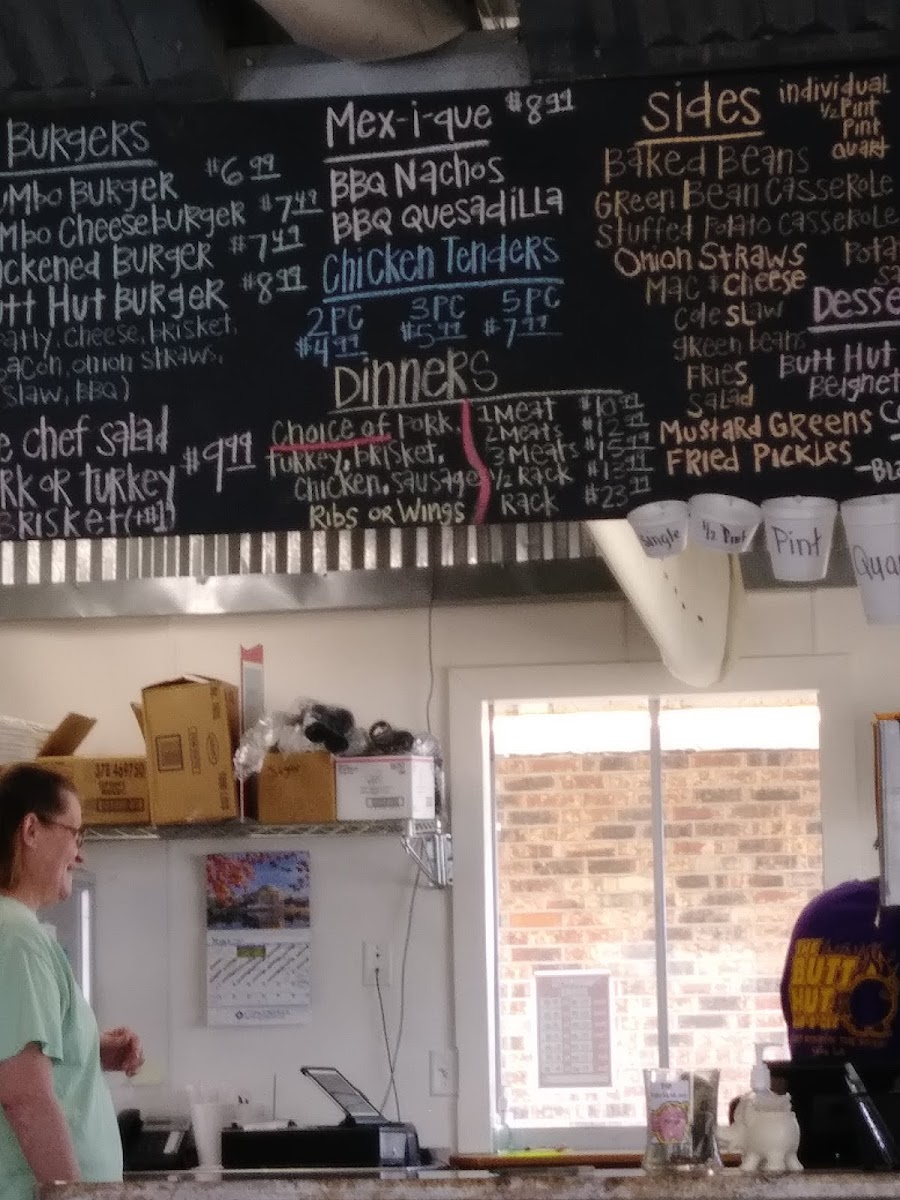 BURGERS
UMBO BURGER $6.99
MBO Cheeseburger $7.49
ackened Burger $7.49
utt Hut Burger $8.99
patty, cheese, brisket,
bacon, onion straws,
slaw, BBQ)
e chef salad
RK OR TURKEY $9.99
BRISKET (+$1)
Mex-i-que $8.99
BBQ Nachos
BBQ Quesadilla
Chicken Tenders
2PC 3PC 5PC
$4.99 $5.99 $7.99
Dinners
Choice of Pork,
Turkey, brisket,
Chicken, sausage
Ribs or Wings
1 Meat
2 Meats
3 Meats
1/2 Rack
Rack
Sides
individual
1/2 Pint
Pint
Quart
Baked Beans
Green Bean Casserole
Stuffed Potato Casserole
Onion Straws
Mac & Cheese
Cole Slaw
green beans
Fries
Salad
Mustard Greens
Fried Pickles
Pota
Sa
Desse
Butt Hut
Beignet
Co
-Bla
Single
1/2 Pint
Pint
Qua
378 469750
Sugar
THE
BUTT
HUT